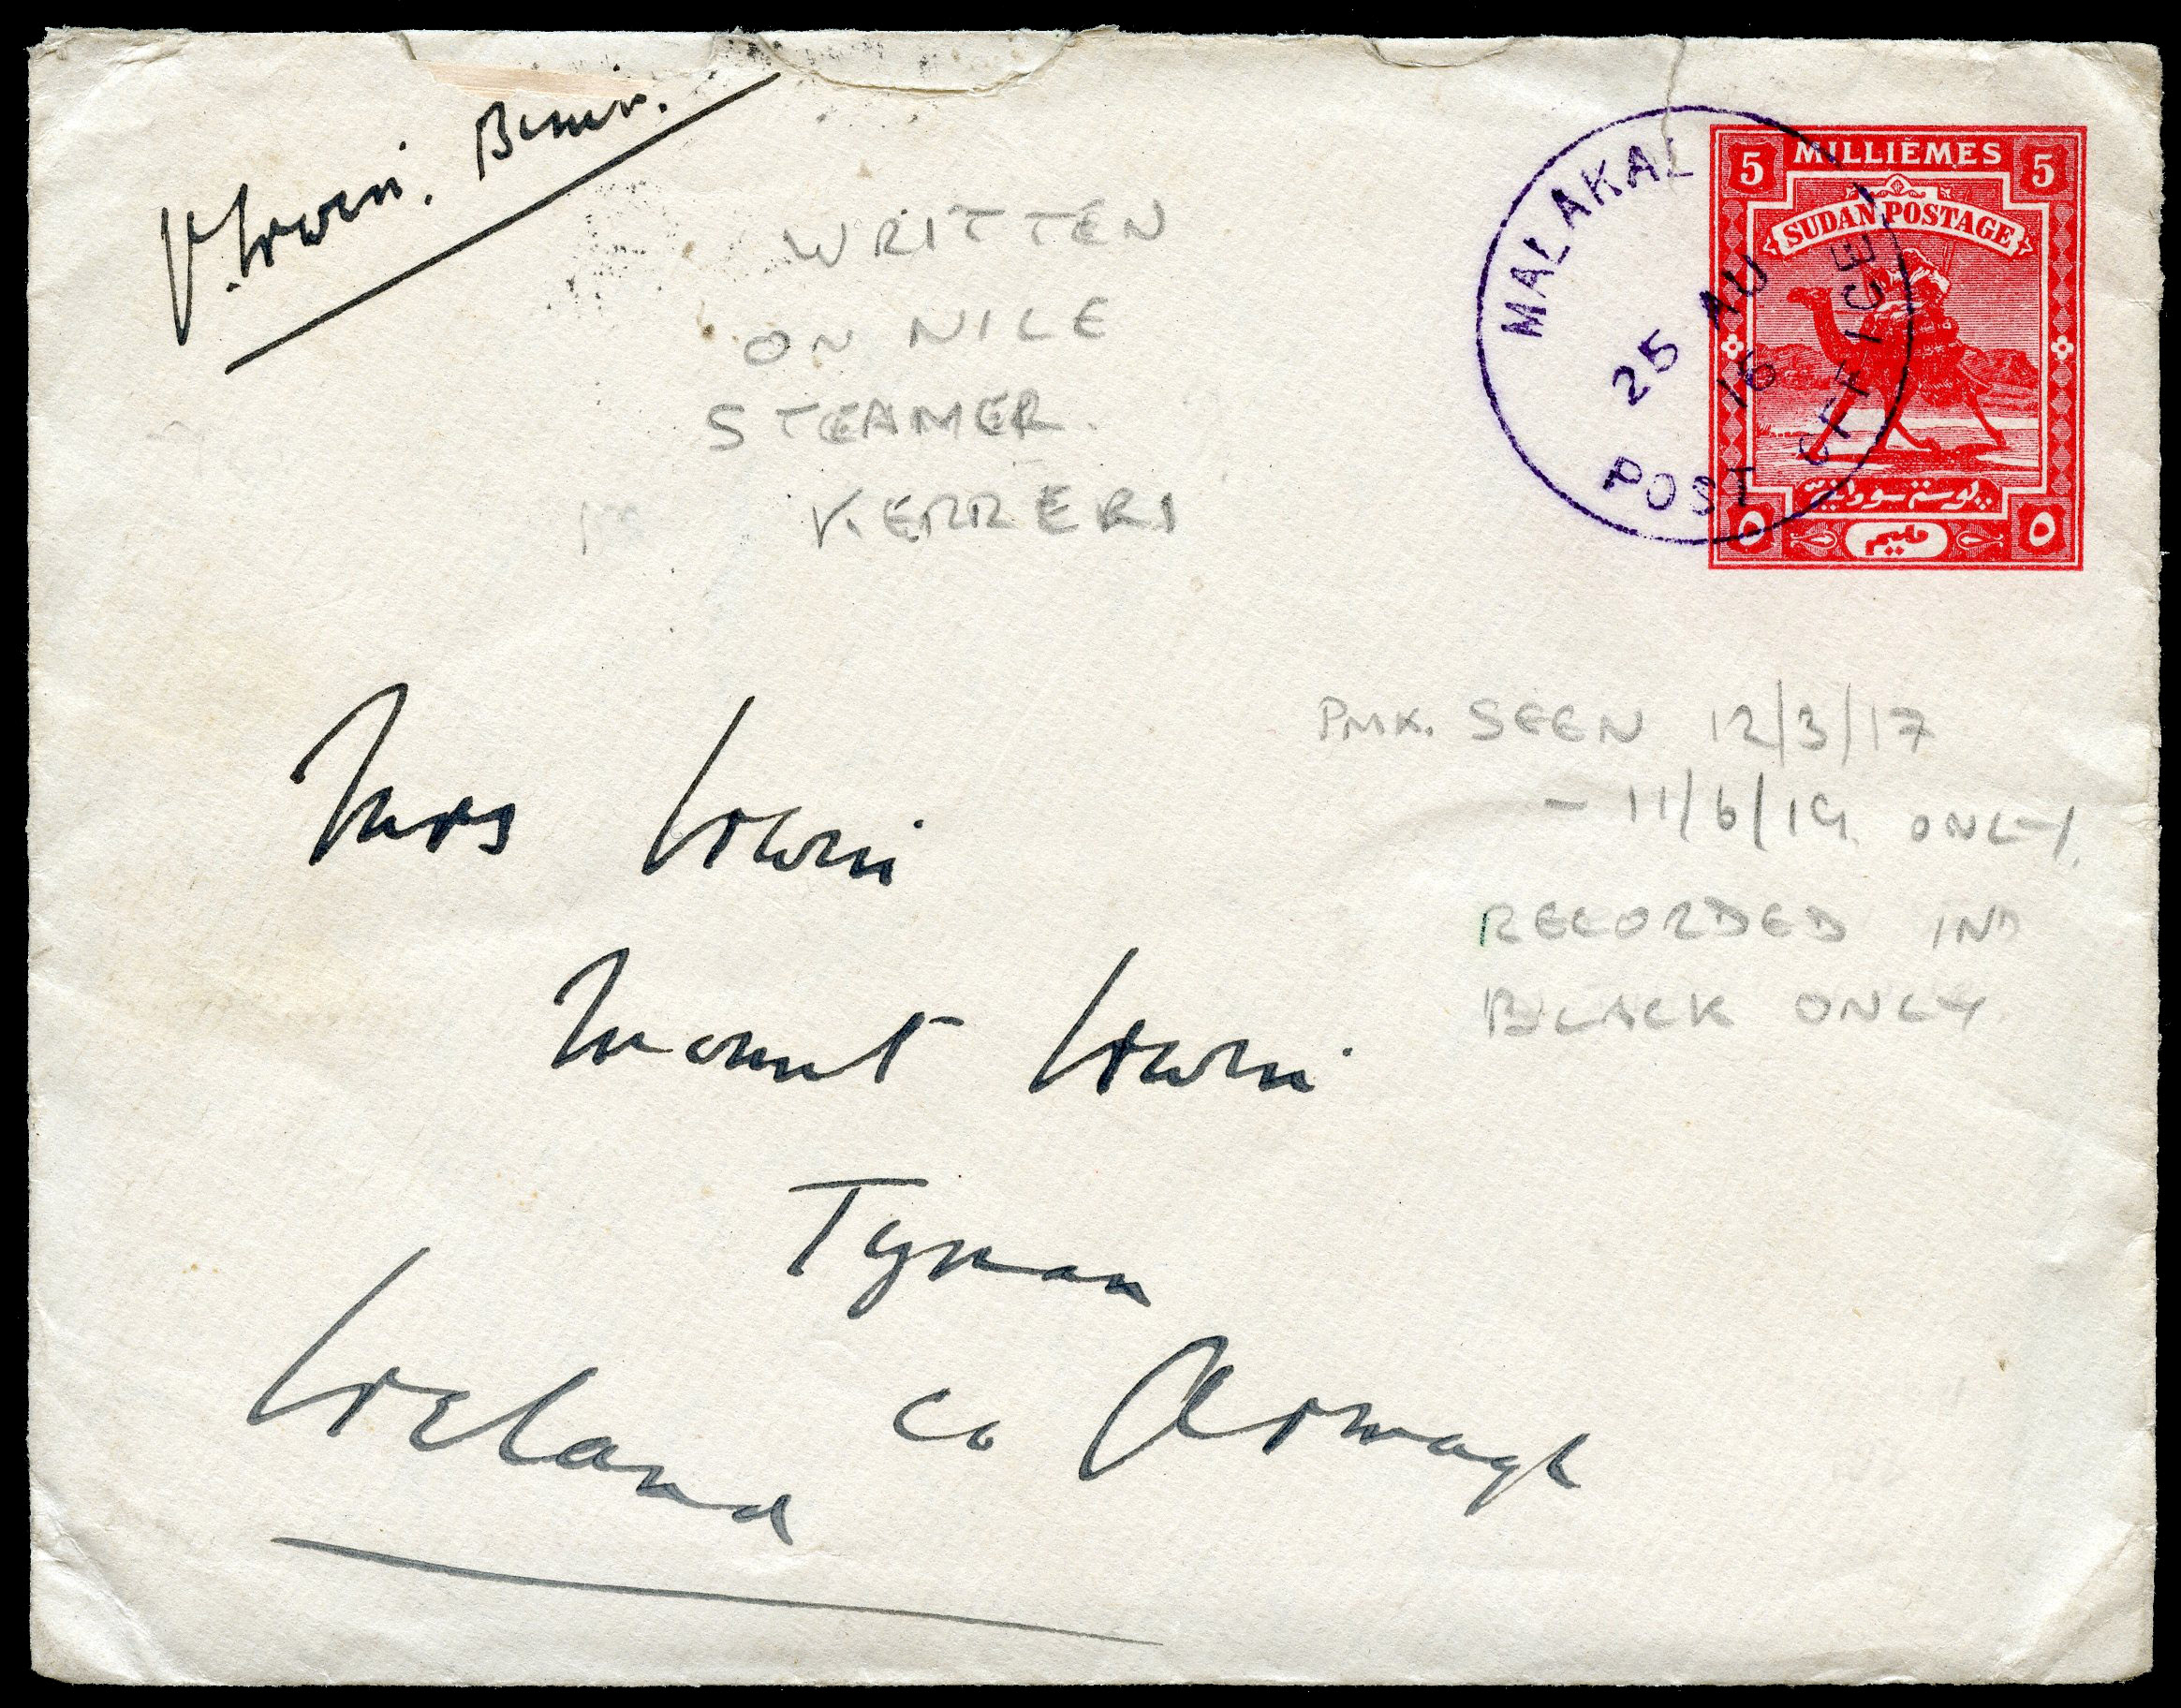 V. Irwin.
WRITTEN
ON NILE
STEAMER.
KERRERI
MALAKAL
25 AU
16
POST OFFICE
5 MILLIÈMES 5
SUDAN POSTAGE
بوستة سودانية
٥ مليم ٥
PMK. SEEN 12/3/17
- 11/6/19 ONLY.
RECORDED IN
BLACK ONLY
Mrs Irwin
Mount Irwin
Tynan
Co Armagh
Ireland